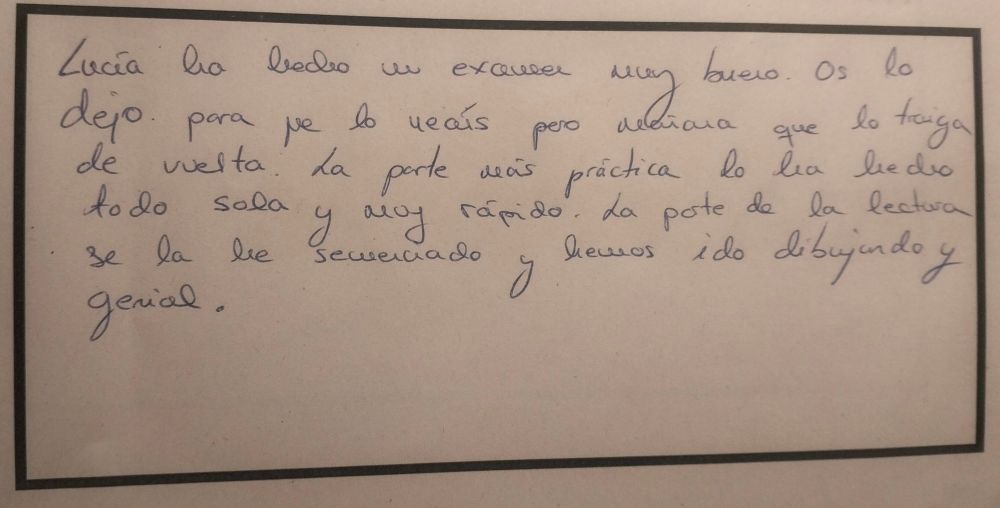 Lucía ha hecho un examen muy bueno. Os lo
dejo. para que lo veáis pero mañana que lo traiga
de vuelta. La parte más práctica lo ha hecho
todo sola y muy rápido. La parte de la lectura
se la he secuenciado y hemos ido dibujando y
genial.